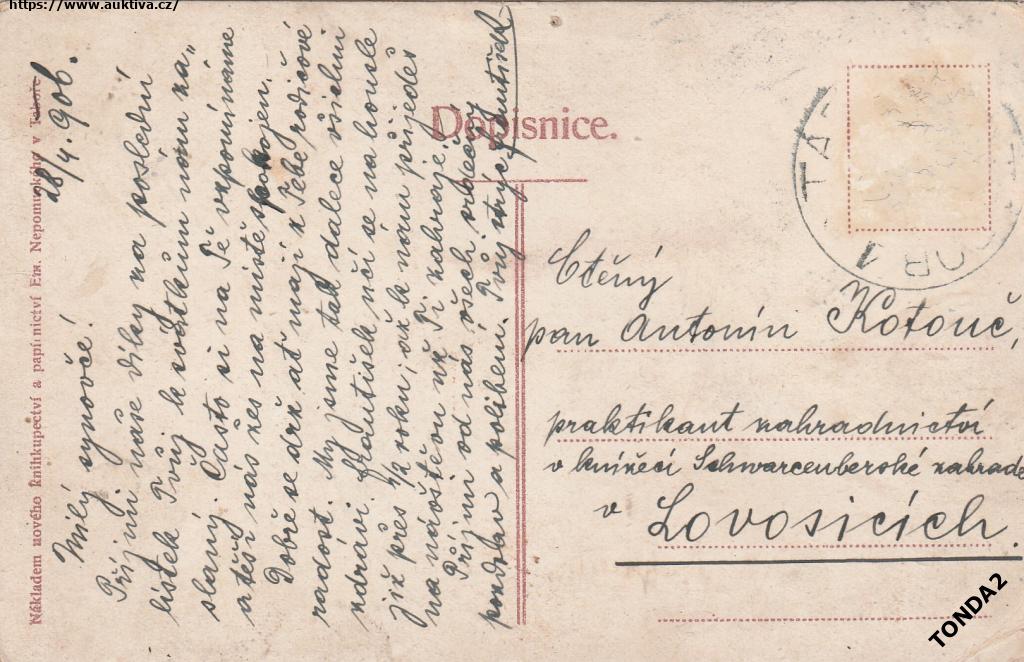 https://www.auktiva.cz/
Nákladem nového knihkupectví a papírnictví Em. Nepomuckého v Táboře
28/4. 906.
Milý synovče!
Přijmi naše díky na poslední
lístek Tvůj k svátkům nám za„
slaný. Často si na Tě vzpomínáme
a těší nás žes na místě spokojen.
Dobře se drž ať mají z Tebe rodičové
radost. My jsme tak dalece všichni
zdrávi. Frantíšek učí se na housle
již přes 1/2 roku, až k nám přijedeš
na návštěvu už Ti zahraje.
Přijmi od nás všech srdečný
pozdrav a políbení. Tvůj strýc František
Dopisnice.
TÁ
OR 1
Ctěný
pan Antonín Kotouč,
praktikant zahradnictví
v knížecí Schwarcenberské zahradě
v Lovosicích.
TONDA2